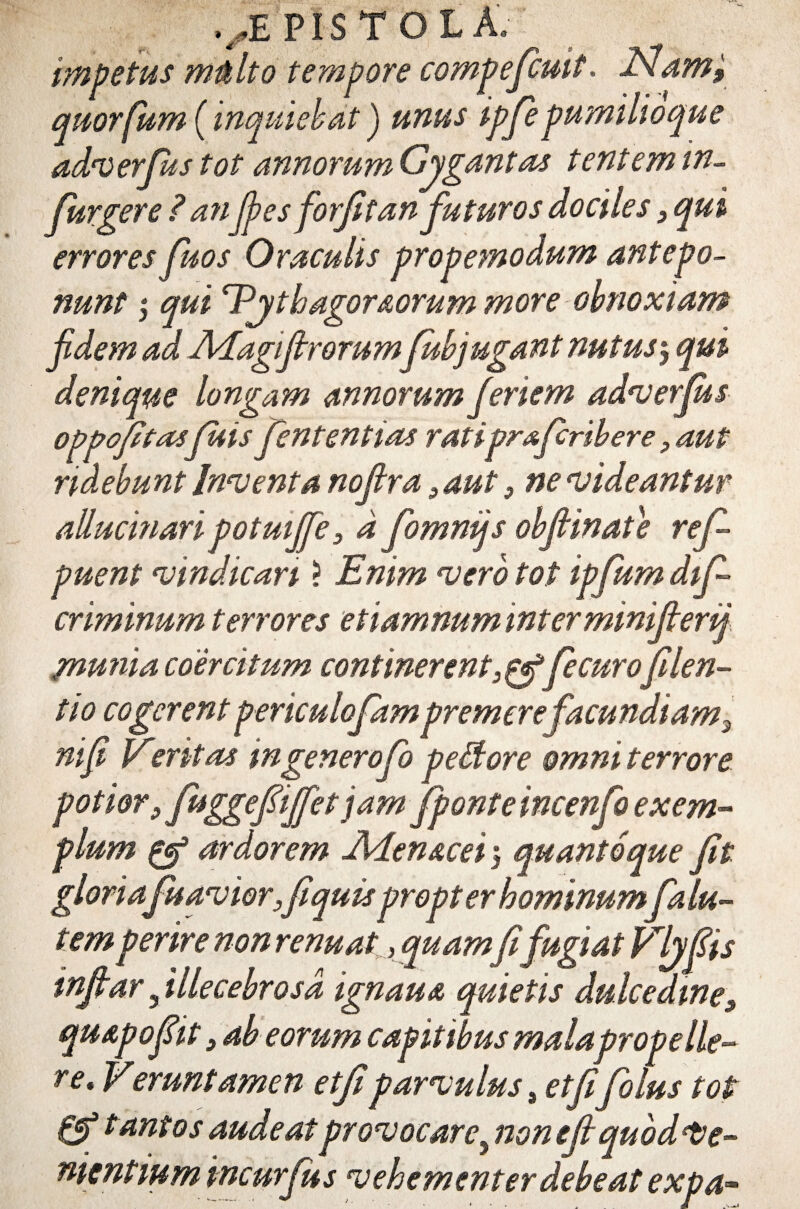 EPISTOLA.
impetus multo tempore compeſcuit. Nam,
quorſum (inquiebat) unus ipſe pumilióque
adverſus tot annorum Gygantas tentem in-
ſurgere? an ſpes forſitan futuros dociles, qui
errores ſuos Oraculis propemodum antepo-
nunt; qui Pythagoræorum more obnoxiam
fidem ad Magiſtrorum ſubjugant nutus; qui
denique longam annorum ſeriem adverſus
oppoſitas ſuis ſententias rati præſcribere, aut
ridebunt Inventa noſtra, aut, ne videantur
allucinari potuiſſe, à ſomnijs obſtinatè reſ-
puent vindicari? Enim verò tot ipſum diſ-
criminum terrores etiamnum inter miniſterij
munia coërcitum continerent, & ſecuro ſilen-
tio cogerent periculoſam premere facundiam,
niſi Veritas in generoſo pectore omni terrore
potior, ſuggeſſiſſet jam ſponte incenſo exem-
plum & ardorem Menæcei; quantóque ſit
gloria ſuavior, ſi quis propter hominum ſalu-
tem perire non renuat, quam ſi fugiat Vlyſſis
inſtar, illecebrosâ ignauæ quietis dulcedine,
quæ poſſit, ab eorum capitibus mala propelle-
re. Veruntamen etſi parvulus, etſi ſolus tot
& tantos audeat provocare, non eſt quòd ve-
nientium incurſus vehementer debeat expa-